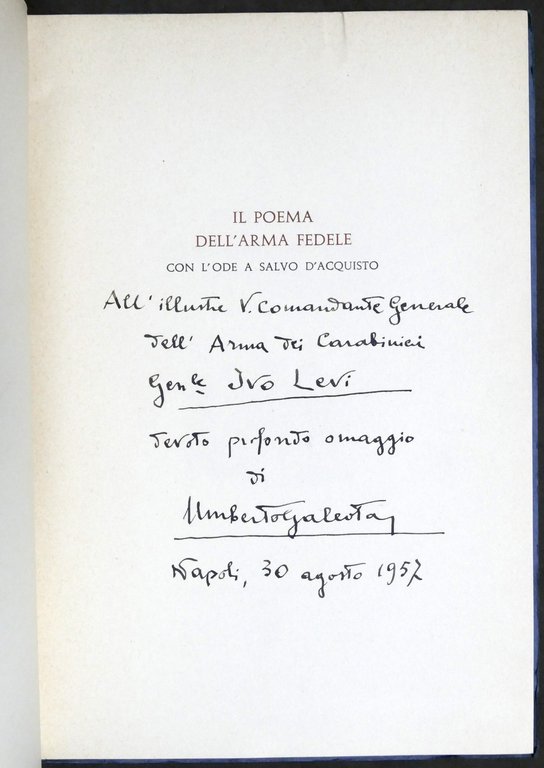 IL POEMA
DELL'ARMA FEDELE
CON L'ODE A SALVO D'ACQUISTO
All' illustre V. Comandante Generale
dell' Arma dei Carabinieri
Gen.le Ivo Levi
devoto profondo omaggio
di
Umberto Galeota
Napoli, 30 agosto 1957